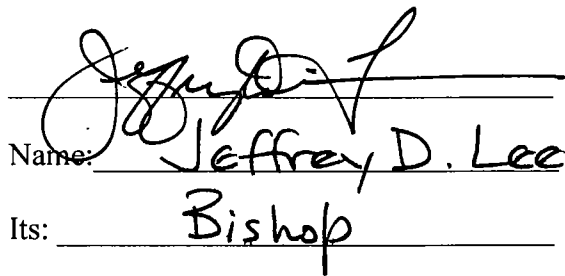 Name: Jeffrey D. Lee
Its: Bishop